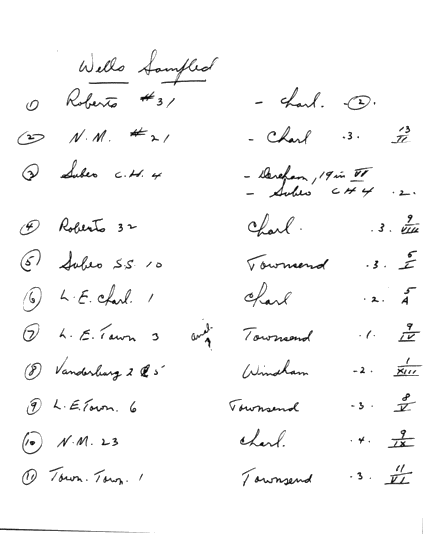 Wells Sampled
① Roberts #31 - Charl. ②.
② N.M. #21 - Charl .3. 13/II
③ Subeo C.H. 4 - Dereham, 19 in VI
- Subeo CH4 .2.
④ Roberts 32 Charl. .3. 9/VIII
⑤ Subeo S.S. 10 Townsend .3. 5/I
⑥ L.E. Charl. 1 Charl .2. 5/A
⑦ L.E. Town 3 Townsend .1. 9/IV
⑧ Vanderburg 2 5 Windham -2. 1/XIII
⑨ L.E. Town. 6 Townsend -3. 8/V
⑩ N.M. 23 Charl. .4. 9/IX
⑪ Town. Town. 1 Townsend .3. 11/VI